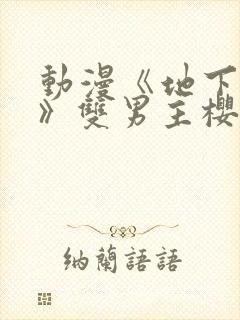 動漫《地下
》雙男主櫻
納蘭語語